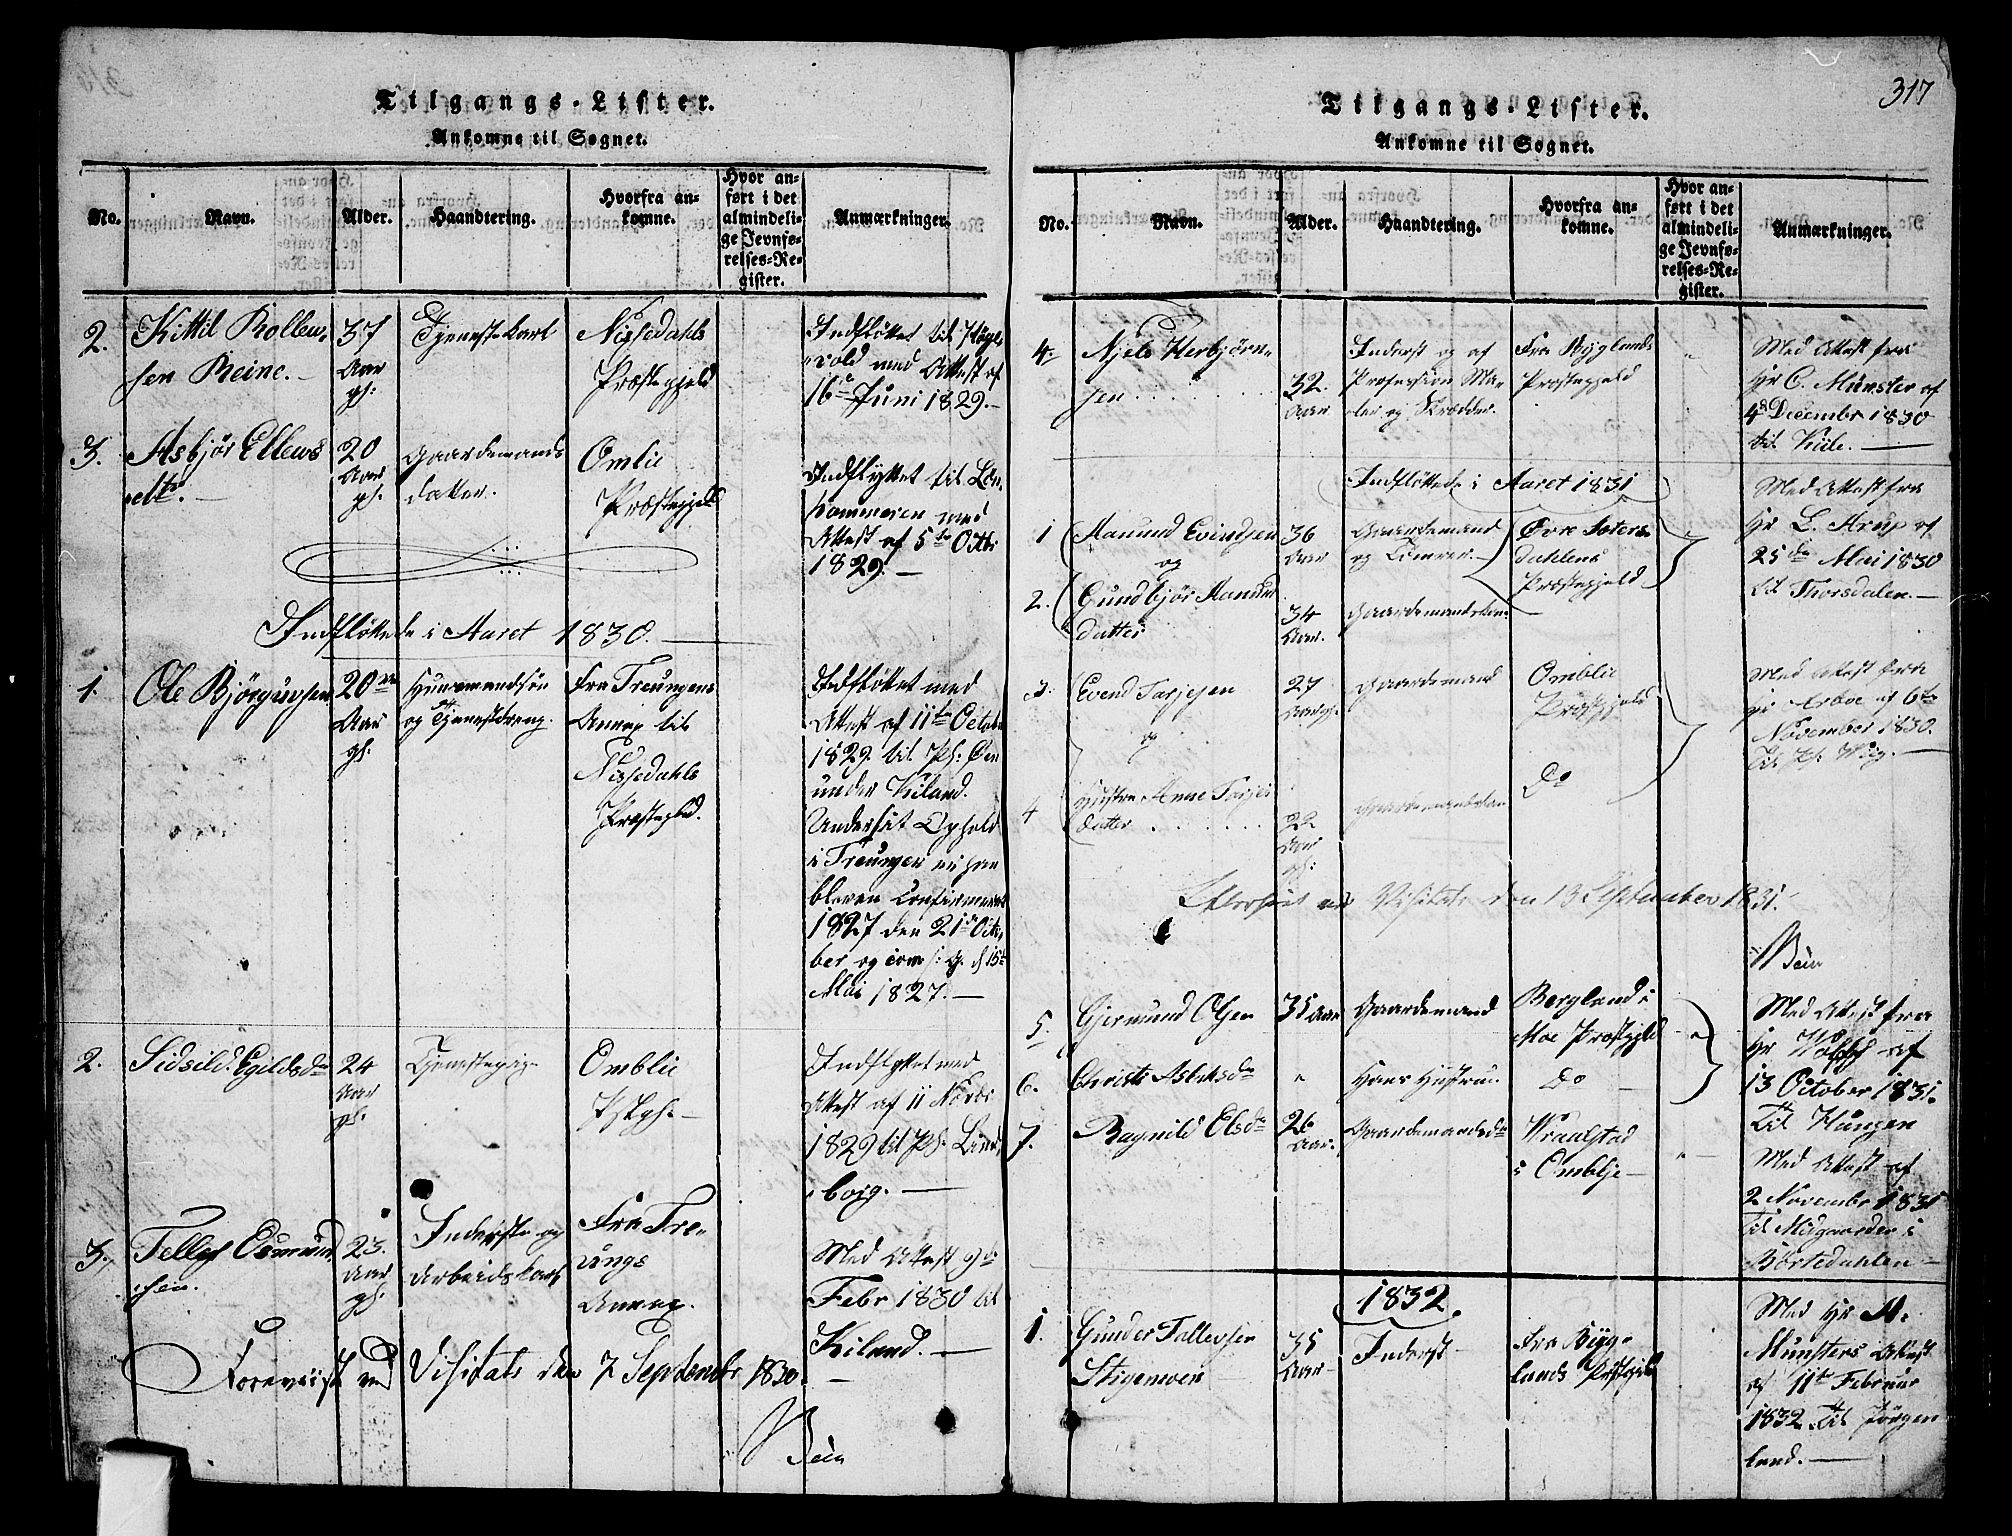 Tilgangs-Lister.
Ankomne til Sognet.
No.
Navn.
Alder.
Haandtering.
Hvorfra an-
komne.
Hvor an-
ført i det
almindeli-
ge Jevnfø-
relses-Re-
gister.
Anmærkninger.
2.
Kittil Rollew-
sen Reine.
37
Aar
gl:
Tjenestekarl
Nissedahls
Præstegjeld
Indfløttet til
vold med Attest af
16de Juni 1829.
3.
Asbjør Ellews
dtr.
20
Aar
gl.
Gaardemands
datter.
Omlie
Præstegjeld
Indflyttet til
med
Attest af 5te Octbr
1829.
Indfløttede i Aaret 1830.
1.
Ole Bjørgufsen
20
Aar
gl.
Huusmandsøn
og Tjenestdreng.
Fra Treungens
Annex til
Nissedahls
Præstegjeld.
Indfløttet med
Attest af 11te October
1829 til Pl: Øen
under Kiland.
Under sit Ophold
i Treungen er han
bleven Confirmeret
1827 den 21de Octo-
ber og
Mai 1827.
2.
Sidsild Egildsdr
24
Aar
gl.
Tjenestepige
Omblie
Indflyttet med
Attest af 11 Novbr
1829 til Pl: Lind-
borg.
3.
Tellef Osmund
sen.
23.
Aar
gl.
Inderste og
Arbeidskarl
Fra Tre-
ungs
Annex.
Med Attest 9de
Febr 1830 til
Kiland.
Foreviist ved Visitats den 7 September 1830.
Tilgangs-Lister.
Ankomne til Sognet.
317
No.
Navn.
Alder.
Haandtering.
Hvorfra an-
komne.
Hvor an-
ført i det
almindeli-
ge Jevnfø-
relses-Re-
gister.
Anmærkninger.
4.
Njels Herbjørn-
sen
32.
Aar
Inderst og af
Profession Ma-
ler og Skrædder.
Fra Byglands
Præstegjeld
"
Med Attest fra
Hr C. Münster af
4de Decembr 1830
til Kile.
Indfløttede i Aaret 1831
1
Aanund Evindsen
og
36
Aar
Gaardemand
og Tømrer.
Øvre Seters-
dahlens
Præstegjeld
Med Attest fra
Hr L. Arup af
25de Mai 1830
til Thorsdalen.
2.
Gundbjør Aanund
datter
34
Aar.
Gaardemandskone
3.
Evend Tarjesen
og
27
Aar gl.
Gaardemand
Omblie
Præstegjeld
Med Attest fra
Hr Arboe af 6te
November 1830.
Til Pl: Wiig.
4
Hustru Anne Tarjes
datter
22
Aar
gl:
Do
Efterseet ved Visitats den 13 September 1831.
5.
Gjermund Olsen
35 Aar
Gaardemand
Borgland i
Moe Præstgjeld
Med Attest fra
Hr Wolff af
13 October 1831.
Til Haugen
6.
Christi Aslaksdr
"
Hans Hustrue
Do
7.
Ragnild Olsdr
26
Aar.
Gaardemandsdr
Wraalstad
i Omblje
"
Med Attest af
2 Novembr 1831
Til Midgaarden i
Børtedahlen
1832
1.
Gunder Tallevsen
Stigenwer
35
Aar
Inderst
Fra Byg-
lands Præstgjeld
Med Hr A.
Munsters Attest
af 11te Februar
1832 Til Jørgen-
land.